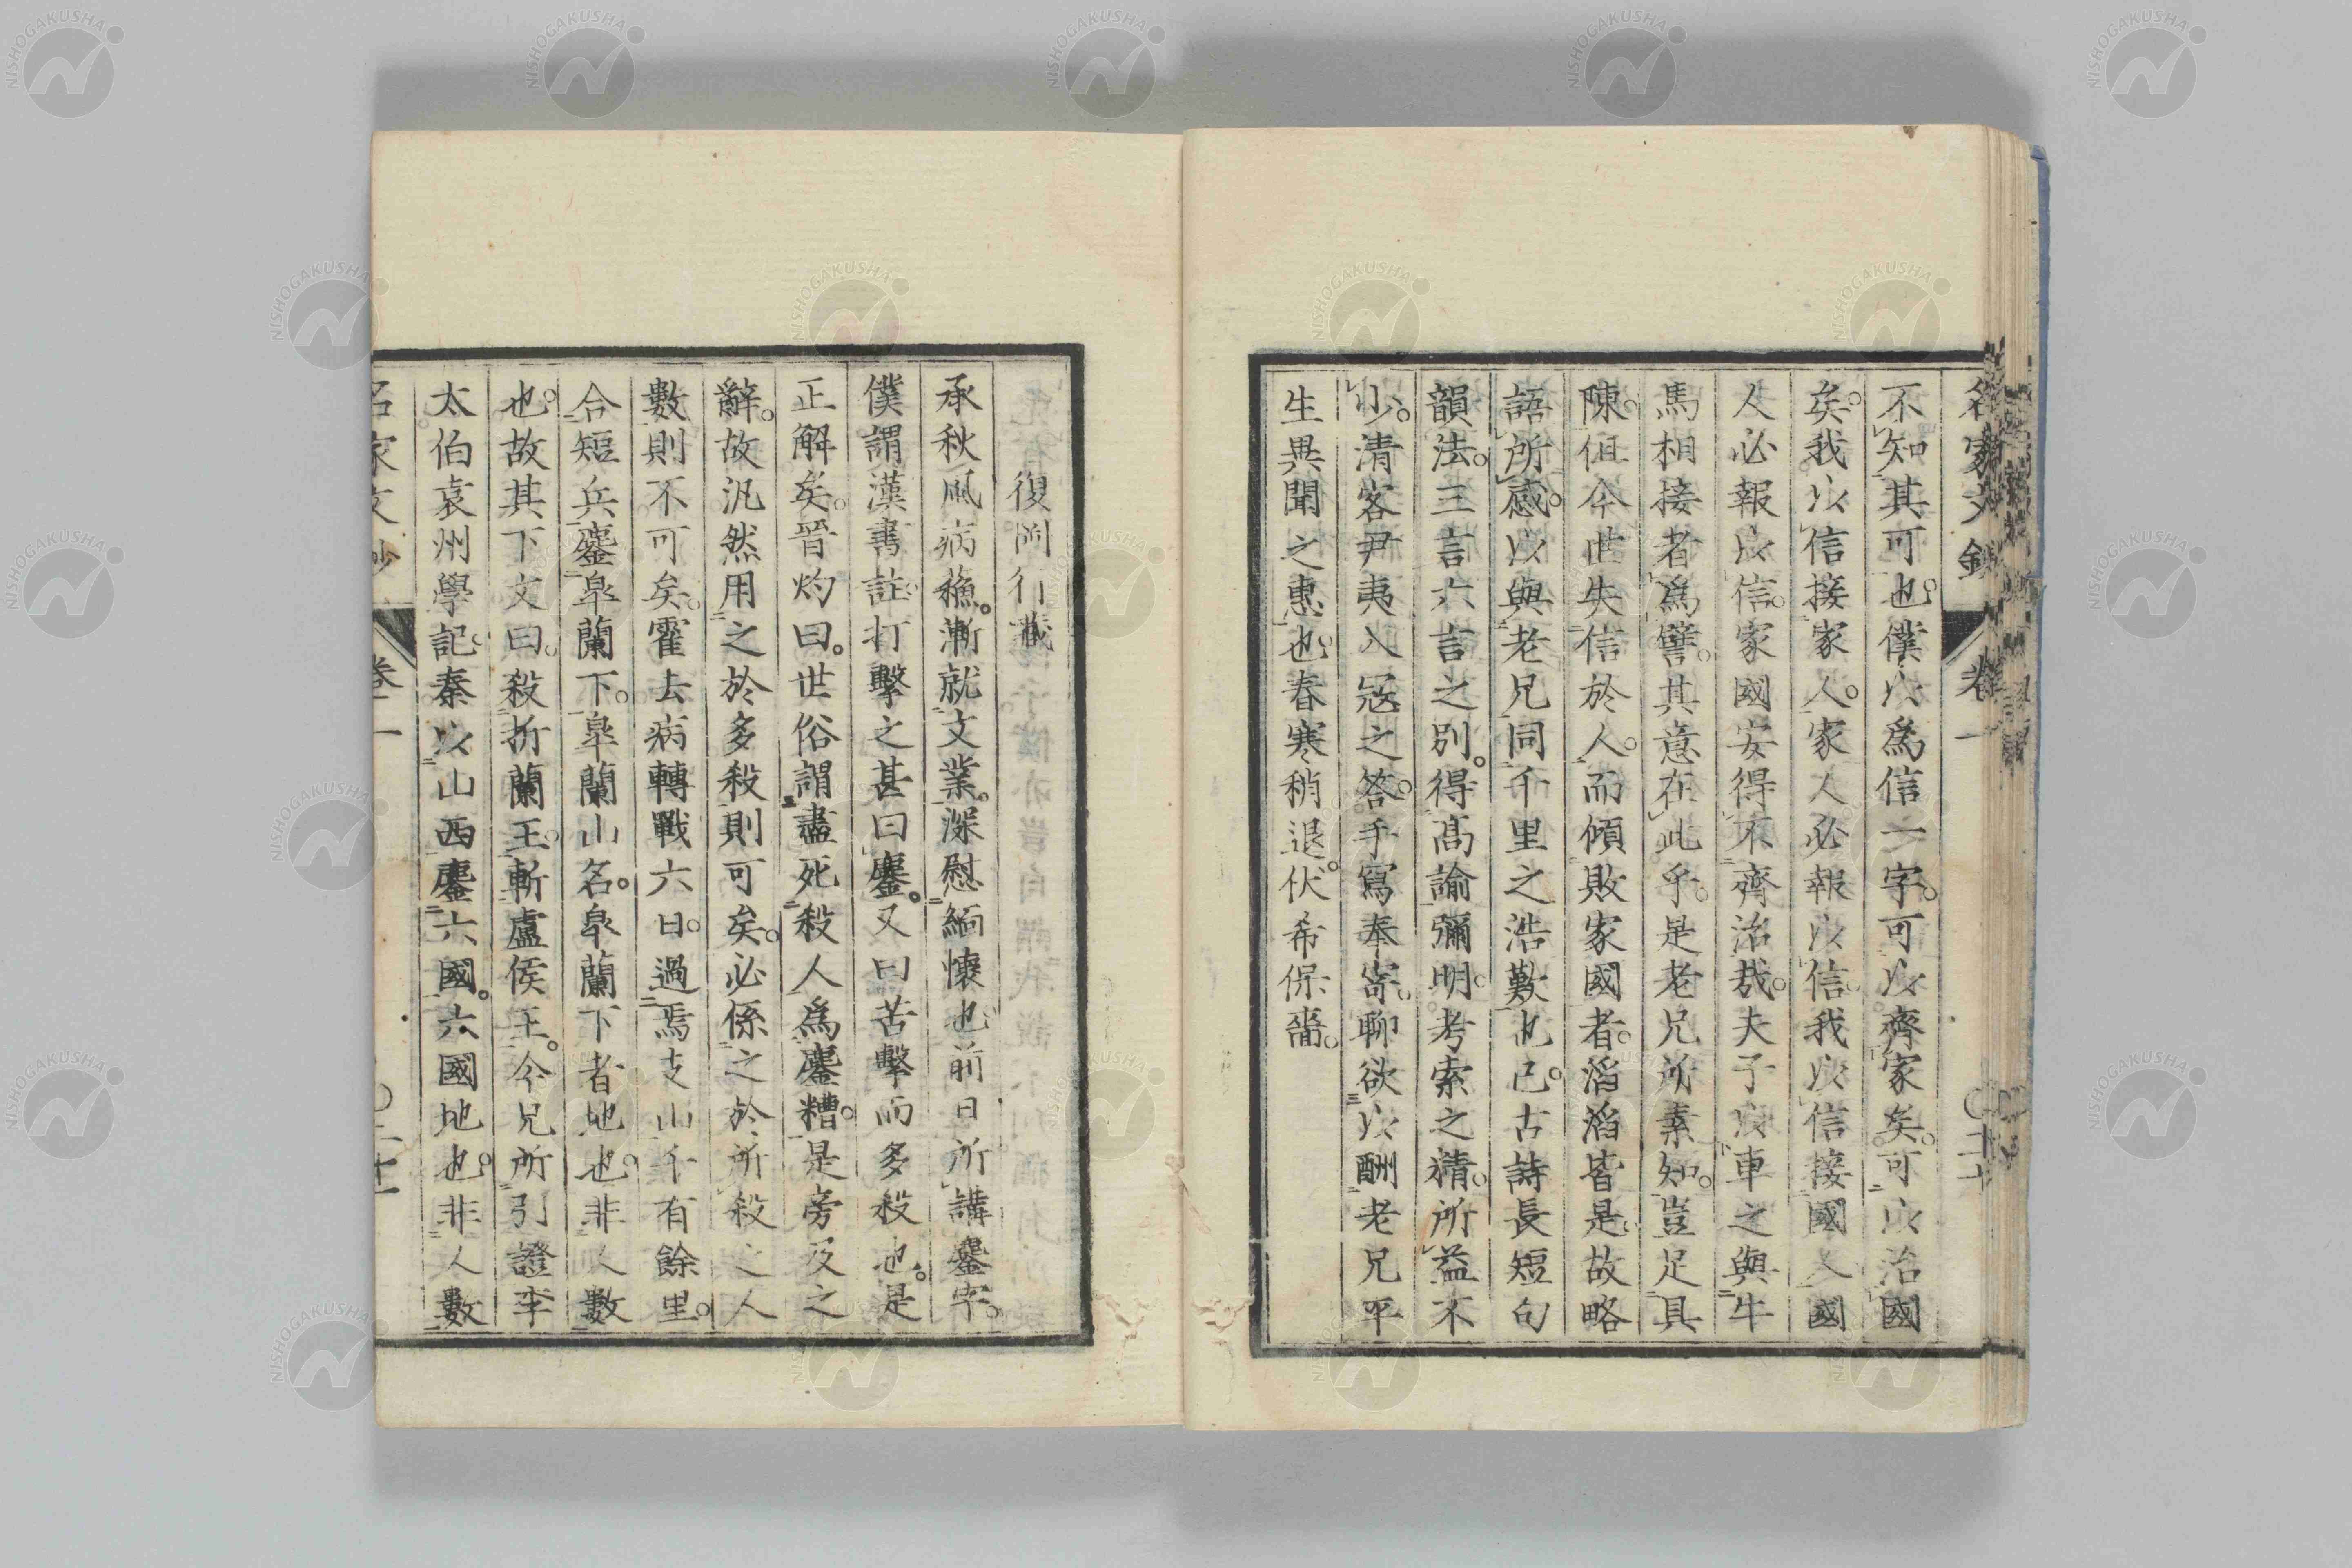 名家文鈔 卷一
不知其可也。僕以爲信一字。可以齊家矣。可以治國
矣。我以信接家人。家人必報以信。我以信接國人。國
人必報以信。家國安得不齊治哉。夫子以車之與牛
馬相接者爲譬。其意在此乎。是老兄所素知。豈足具
陳。但今世失信於人。而傾敗家國者。滔滔皆是。故略
語所感。以與老兄同千里之浩歎也已。古詩長短句
韻法。三言六言之別。得高諭彌明。考索之精。所益不
少。清客尹夷入冦之答。手寫奉寄。聊欲以酬老兄平
生異聞之惠也。春寒稍退。伏希保嗇。
復岡行藏
承秋風病蘓。漸就文業。深慰緬懷也。前日所講鏖字。
僕謂漢書註。打擊之甚曰鏖。又曰苦擊而多殺也。是
正解矣。晉灼曰。世俗謂盡死殺人爲鏖糟。是旁及之
辭。故汎然用之於多殺則可矣。必係之於所殺之人
數則不可矣。霍去病轉戰六日。過焉支山千有餘里。
合短兵鏖皐蘭下。皐蘭山名。皐蘭下者地也。非人數
也。故其下文曰。殺折蘭王。斬盧侯王。今兄所引證李
太伯袁州學記。秦以山西鏖六國。六國地也。非人數
名家文鈔 卷一
NISHOGAKUSHA